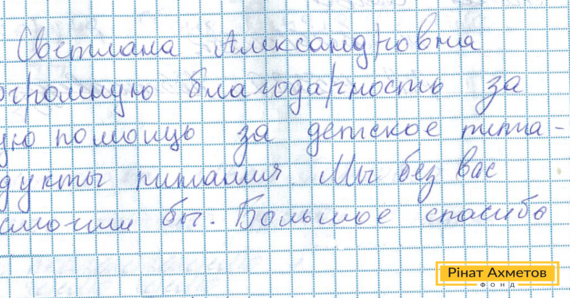 Светлана Александровна
огромную благодарность за
ую помощь за детское пита-
дукты питания Мы без вас
смогли бы. Большое спасибо
Рінат Ахметов
ФОНД